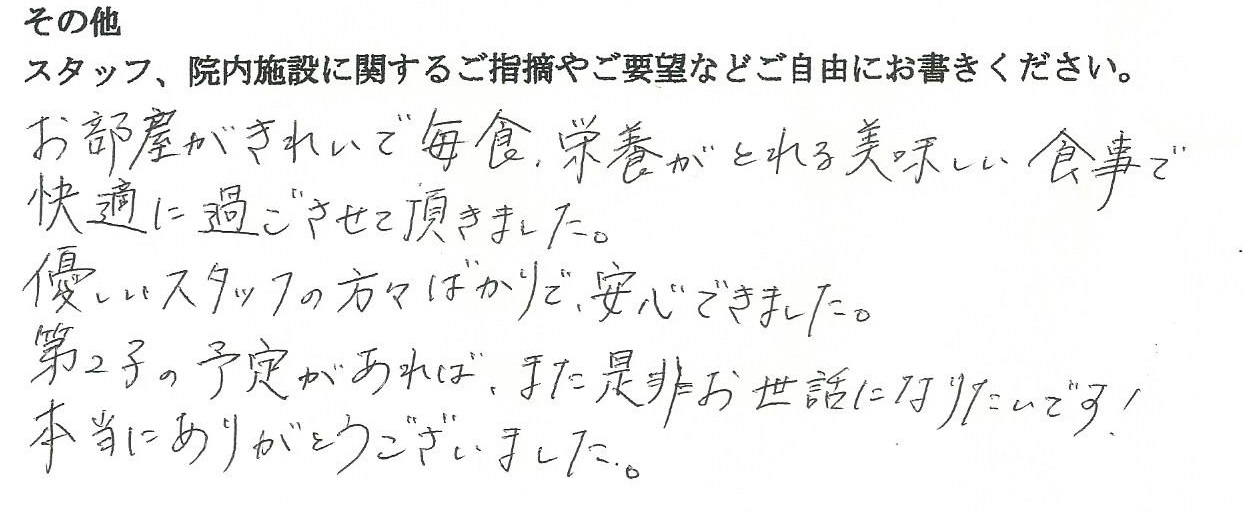 その他
スタッフ、院内施設に関するご指摘やご要望などご自由にお書きください。
お部屋がきれいで毎食、栄養がとれる美味しい食事で
快適に過ごさせて頂きました。
優しいスタッフの方々ばかりで、安心できました。
第2子の予定があれば、また是非お世話になりたいです!
本当にありがとうございました。